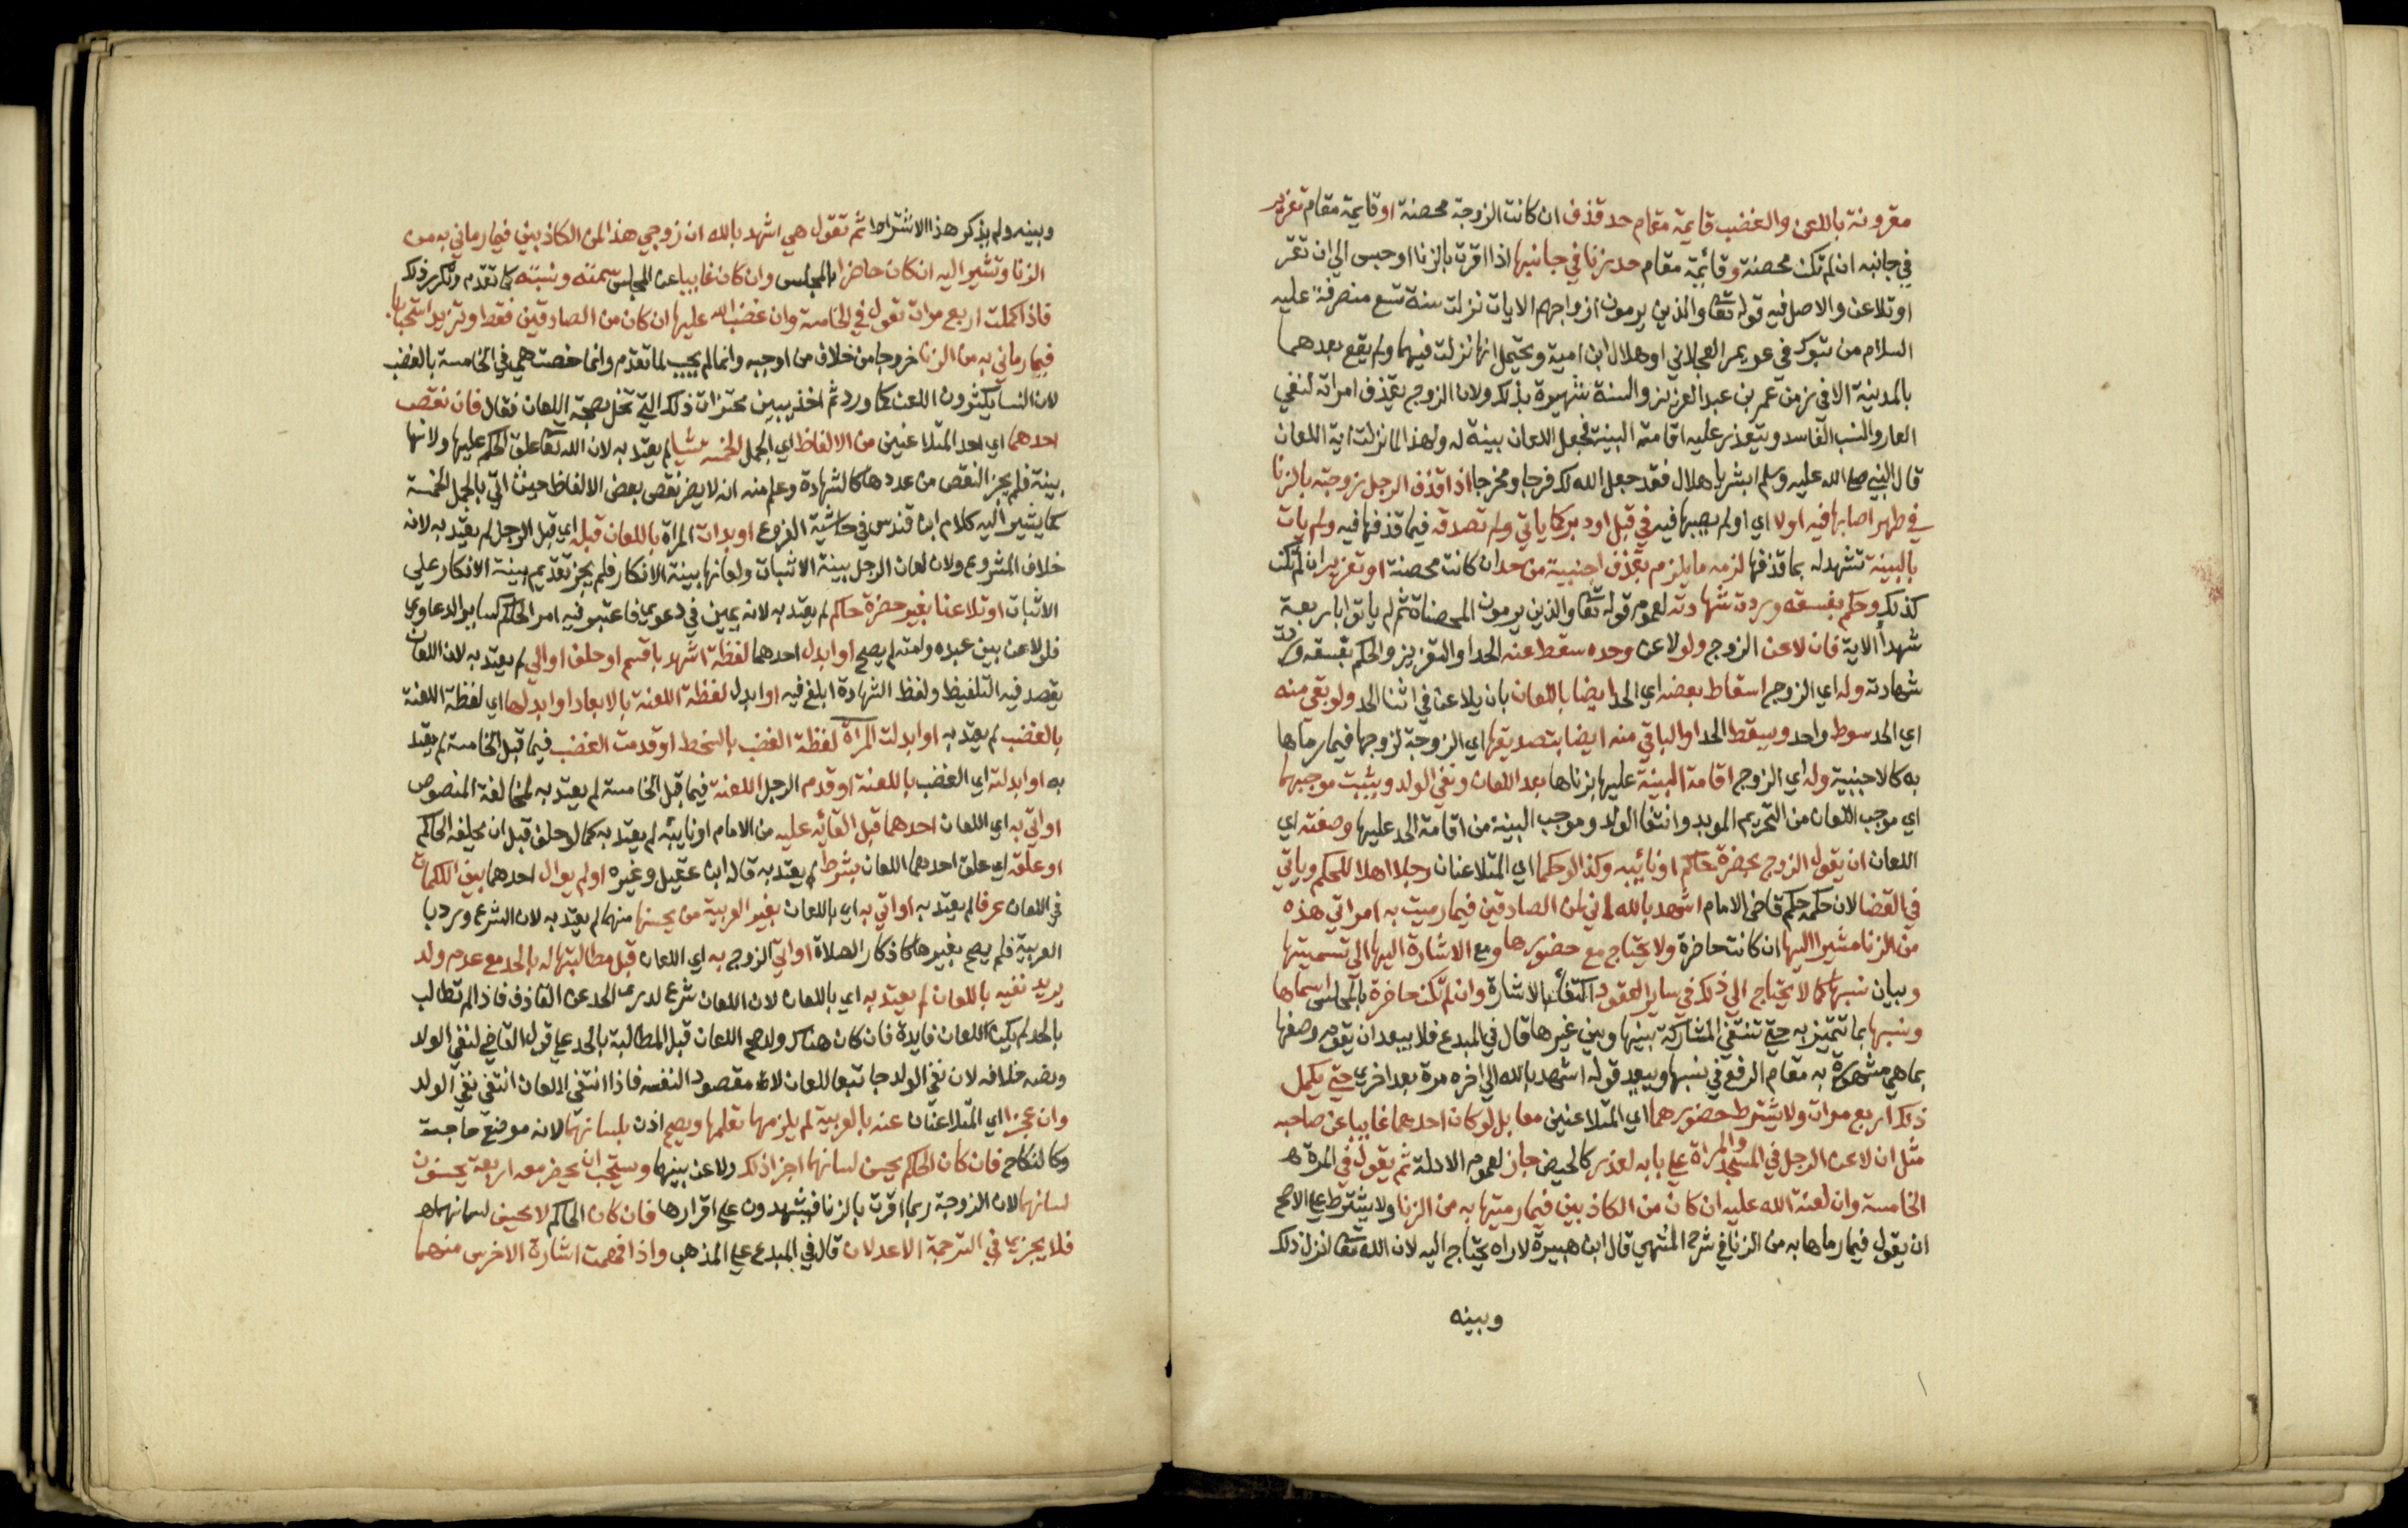 مقرونة باللعن والغضب قايمة مقام حد قذف ان كانت الزوجة محصنة او قايمة مقام تعزير
في جانبه ان لم تكن محصنة وقائمة مقام حد زنا في جانبها اذا اقرت بالزنا او حبس الي ان تقر
او تلاعن والاصل فيه قوله تعا والذين يرمون ازواجهم الايات نزلت سنة تسع منصرفه عليه
السلام من تبوك في عويمر العجلاني او هلال ابن امية ويحتمل انها نزلت فيهما ولم يقع بعدهما
بالمدينة الا في زمن عمر بن عبد العزيز والسنة شهيرة بذلك ولان الزوج يقذف امراته لنفي
العار والنسب الفاسد ويتعذر عليه اقامة البينة فجعل اللعان بينة له ولهذا لما نزلت اية اللعان
قال النبي صلى الله عليه وسلم ابشر يا هلال فقد جعل الله لك فرجا ومخرجا اذا قذف الرجل زوجته بالزنا
في طهر اصابها فيه اولا اي او لم يصبها فيه في قبل او دبر كما ياتي ولم تصدقه فيما قذفها فيه ولم يات
بالبينة تشهد له بما قذفها لزمه ما يلزم بقذف اجنبية من حد ان كانت محصنة او تعزير ان لم تكن
كذلك وحكم بفسقه وردت شهادته لعموم قوله تعا والذين يرمون المحصناة ثم لم ياتوا باربعة
شهدأ الاية فان لاعن الزوج ولو لاعن وحده سقط عنه الحد او التعزيز والحكم بفسقه ورد
شهادته وله اي الزوج اسقاط بعضه اي الحد ايضا باللعان بان يلاعن في اثنا الحد ولو بقي منه
اي الحد سوط واحد ويسقط الحد او الباقي منه ايضا بتصديقها اي الزوجة لزوجها فيما رماها
به كالاجنبية وله اي الزوج اقامة البينة عليها بزناها بعد اللعان ونفي الولد ويثبت موجبهما
اي موجب اللعان من التحريم الموبد وانتفا الولد وموجب البينة من اقامة الحد عليها وصفته اي
اللعان ان يقول الزوج بحضرة حاكم او نائبه وكذا لو حكما اي المتلاعنان رجلا اهلا للحكم وياتي
في القضا لان حكمه حكم قاضي الامام اشهد بالله اني لمن الصادقين فيما رميت به امراتي هذه
من الزنا مشيرا اليها ان كانت حاضرة ولا يحتاج مع حضورها ومع الاشارة اليها الى تسميتها
وبيان نسبها كما لا يحتاج الي ذلك في ساير العقود اكتفأ بالاشارة وان لم تكن حاضرة بالمجلس اسماها
ونسبها بما تتميز به حتي تنتفي المشاركة بينها وبين غيرها قال في المبدع فلا يبعد ان يقوم وصفها
بما هي مشهورة به مقام الرفع في نسبها ويعيد قوله اشهد بالله الي اخره مرة بعد اخري حتي يكمل
ذلك اربع مرات ولا يشترط حضورهما اي المتلاعنين معا بل لو كان احدهما غايبا عن صاحبه
مثل ان لاعن الرجل في المسجد والمراة علي بابه لعذر كالحيض جاز لعموم الادلة ثم يقول في المرة
الخامسة وان لعنة الله عليه ان كان من الكاذبين فيما رميتها به من الزنا ولا يشترط علي الاصح
ان يقول فيما رماها به من الزنا في شرح المنتهي قال ابن هبيرة لا اراه يحتاج اليه لان الله تعا انزل ذلك
وبينه
وبينه ولم يذكر هذا الاشتراط ثم تقول هي اشهد بالله ان زوجي هذا لمن الكاذبين فيما رماني به من
الزنا وتشير اليه ان كان حاضرا بالمجلس وان كان غايبا عن المجلس سمته ونسبته كما تقدم وتكرر ذلك
فاذا كملت اربع مرات تقول في الخامسة وان غضب الله عليها ان كان من الصادقين فقط وتزيد استحبابا
فيما رماني به من الزنا خروجا من خلاف من اوجبه وانما لم يجب لما تقدم وانما خصت هي في الخامسة بالغضب
لان النسا يكثرون اللعن كما ورد ثم اخذ يبين محترزات ذلك التي تخل بصحة اللعان فقال فان نقص
احدهما اي احد المتلاعنين من الالفاظ اي الجمل الخمسة شيا لم يعتد به لان الله تعا علق الحكم عليها ولانها
بينة فلم يجز النقص من عددها كالشهادة وعلم منه انه لا يضر نقص بعض الالفاظ حيث اتي بالجمل الخمسة
كما يشير اليه كلام ابن قندس في حاشية الفروع او بدات المراة باللعان قبله اي قبل الرجل لم يعتد به لانه
خلاف المشروع ولان لعان الرجل بينة الاثبات ولعانها بينة الانكار فلم يجز تقديم بينة الانكار علي
الاثبات او تلاعنا بغير حضرة حاكم لم يعتد به لانه يمين في دعوي فاعتبر فيه امر الحاكم كساير الدعاوي
فلو لاعن بين عبده وامته لم يصح او ابدل احدهما لفظة اشهد باقسم او حلف او الي لم يعتد به لان اللعان
يقصد فيه التلفيظ ولفظ الشهادة ابلغ فيه او ابدل لفظة اللعنة بالابعاد او ابدلها اي لفظة اللعنة
بالغضب لم يعتد به او ابدلت المراة لفظة الغضب بالسخط او قدمت الغضب فيما قبل الخامسة لم يعتد
به او ابدلته اي الغضب باللعنة او قدم الرجل اللعنة فيما قبل الخامسة لم يعتد به لمخالفة المنصوص
او اتي به اي اللعان احدهما قبل القائه عليه من الامام او نايبه لم يعتد به كما لو حلف قبل ان يحلفه الحاكم
او علقه اي علق احدهما اللعان بشرط لم يعتد به قاله ابن عقيل وغيره او لم يوال احدهما بين الكلمات
في اللعان عرفا لم يعتد به او اتي به اي باللعان بغير العربية من يحسنها منهما لم يعتد به لان الشرع ورد با
العربية فلم يصح بغيرها كاذكار الصلاة او اتي الزوج به اي اللعان قبل مطالبتها له بالحد مع عدم ولد
يريد نفيه باللعان لم يعتد به اي باللعان لان اللعان شرع لدرء الحد عن القاذف فاذا لم تطالب
بالحد لم يكن للعان فايدة فان كان هناك ولد صح اللعان قبل المطالبة بالحد علي قول القاضي لنفي الولد
ونصه خلافه لان نفي الولد جا تبعا للعان لا مقصود النفسه فاذا انتفي اللعان انتفي نفي الولد
وان عجزا اي المتلاعنان عنه بالعربية لم يلزمهما تعلمها ويصح اذن بلسانهما لانه موضع حاجة
وكالنكاح فان كان الحاكم يحسن لسانهما اجزا ذلك ولاعن بينهما ويستحب ان يحضر معه اربعة يحسنون
لسانهما لان الزوجة ربما اقرت بالزنا فيشهدون علي اقرارها فان كان الحاكم لا يحسن لسانهما
فلا يجزي في الترجمة الا عدلان قال في المبدع علي المذهب واذا فهمت اشارة الاخرس منهما